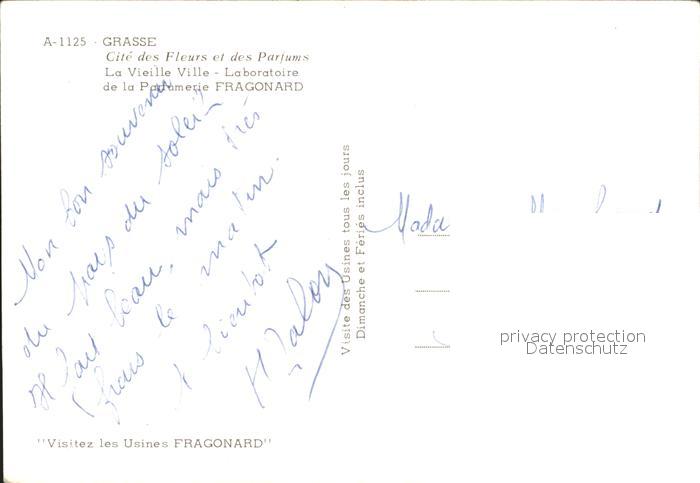 A-1125 - GRASSE
Cité des Fleurs et des Parfums
La Vieille Ville - Laboratoire
de la Parfumerie FRAGONARD
Mon bon souvenir
du pays du soleil
Il fait beau, mais très
frais le matin.
A bientôt
Visite des Usines tous les jours
Dimanche et Fériés inclus
Mada
privacy protection
Datenschutz
"Visitez les Usines FRAGONARD"